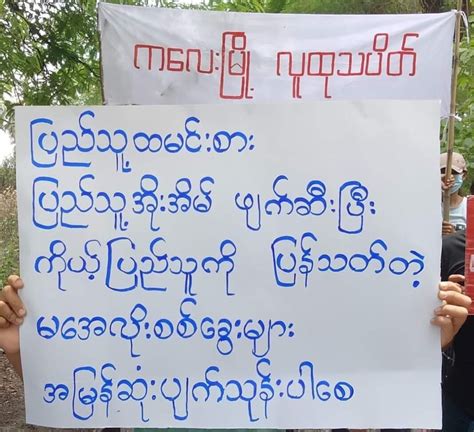 ကလေးမြို့ လူထုသပိတ်
ပြည်သူ့ထမင်းစား
ပြည်သူ့အိုးအိမ် ဖျက်ဆီးပြီး
ကိုယ့်ပြည်သူကို ပြန်သတ်တဲ့
မအေလိုးစစ်ခွေးများ
အမြန်ဆုံးပျက်သုန်းပါစေ